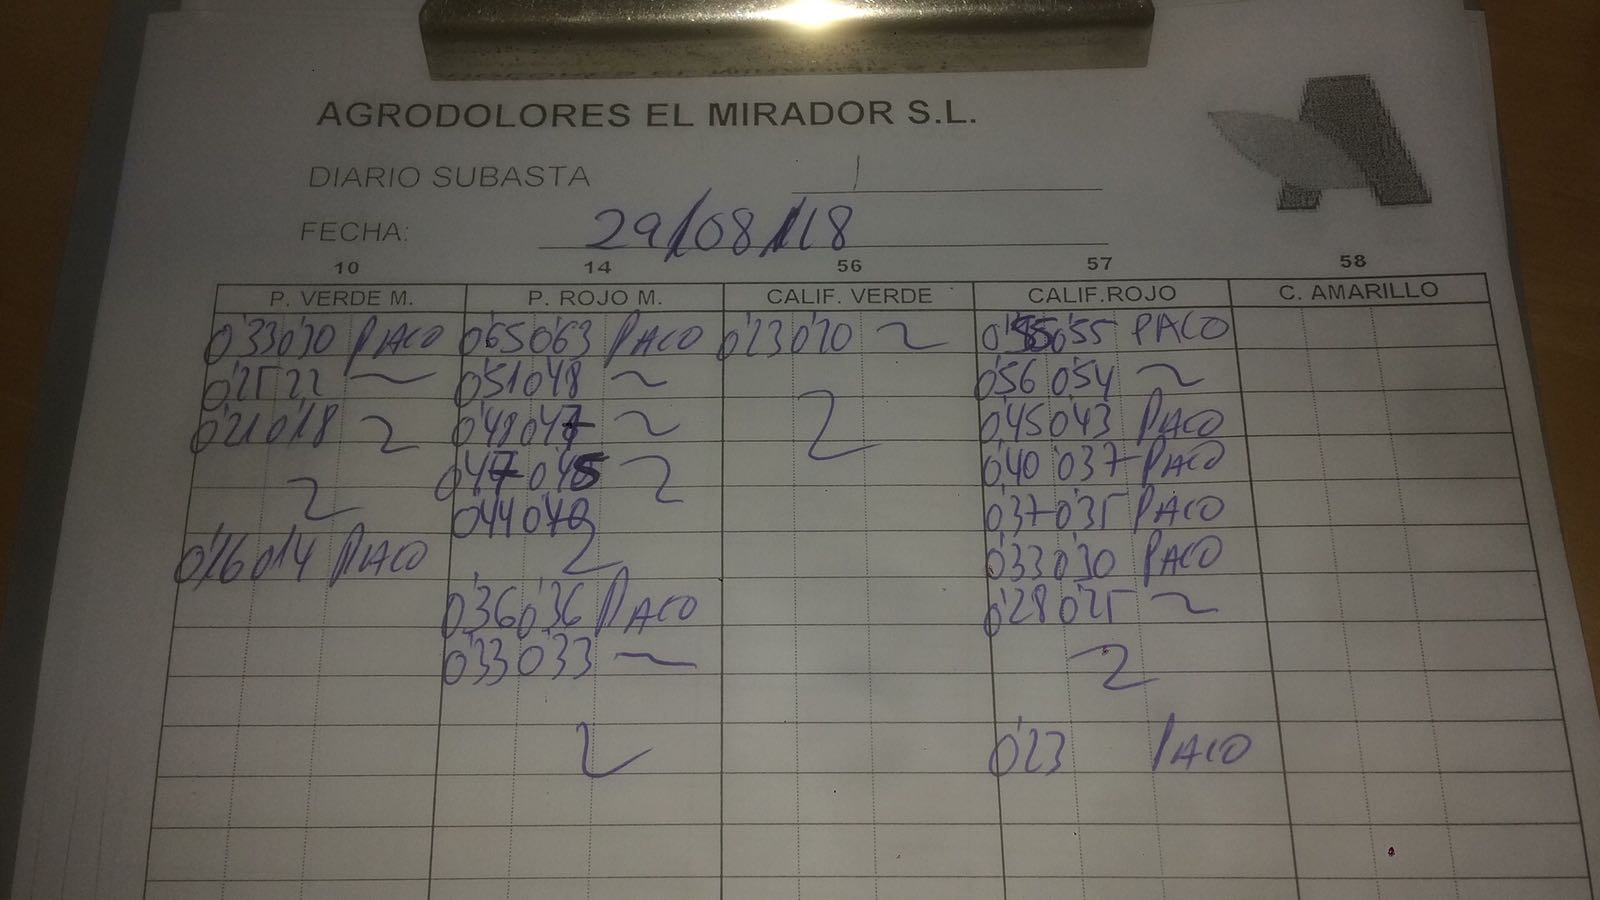 AGRODOLORES EL MIRADOR S.L.
DIARIO SUBASTA
FECHA: 29/08/18
10 14 56 57 58
P. VERDE M. P. ROJO M. CALIF. VERDE CALIF.ROJO C. AMARILLO
0'33 0'30 PACO 0'65 0'63 PACO 0'23 0'20 ~ 0'55 PACO
0'25 22 ~ 0'51 0'48 ~ 0'56 0'54 ~
0'21 0'18 ~ 0'48 0'47 ~ 0'45 0'43 PACO
0'47 0'45 ~ 0'40 0'37 PACO
0'44 0'37 0'35 PACO
0'16 0'14 PACO 0'33 0'30 PACO
0'36 0'36 PACO 0'28 0'25 ~
0'33 0'33 ~
0'23 PACO